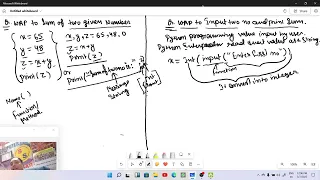 Untitled whiteboard
Q. WAP to Sum of two given Number
x = 65
y = 48
z = x+y
print(z)
x,y,z=65,48,0
z=x+y
print(z)
or
Print("Sum of two no is:",z)
Message
String
Name()
function/
Method
Q. WAP to Input two no and print Sum.
Python programming value input by user.
Python Interpreter read
value as a String.
x = Int(input("Enter first no"))
function
It convert into integer